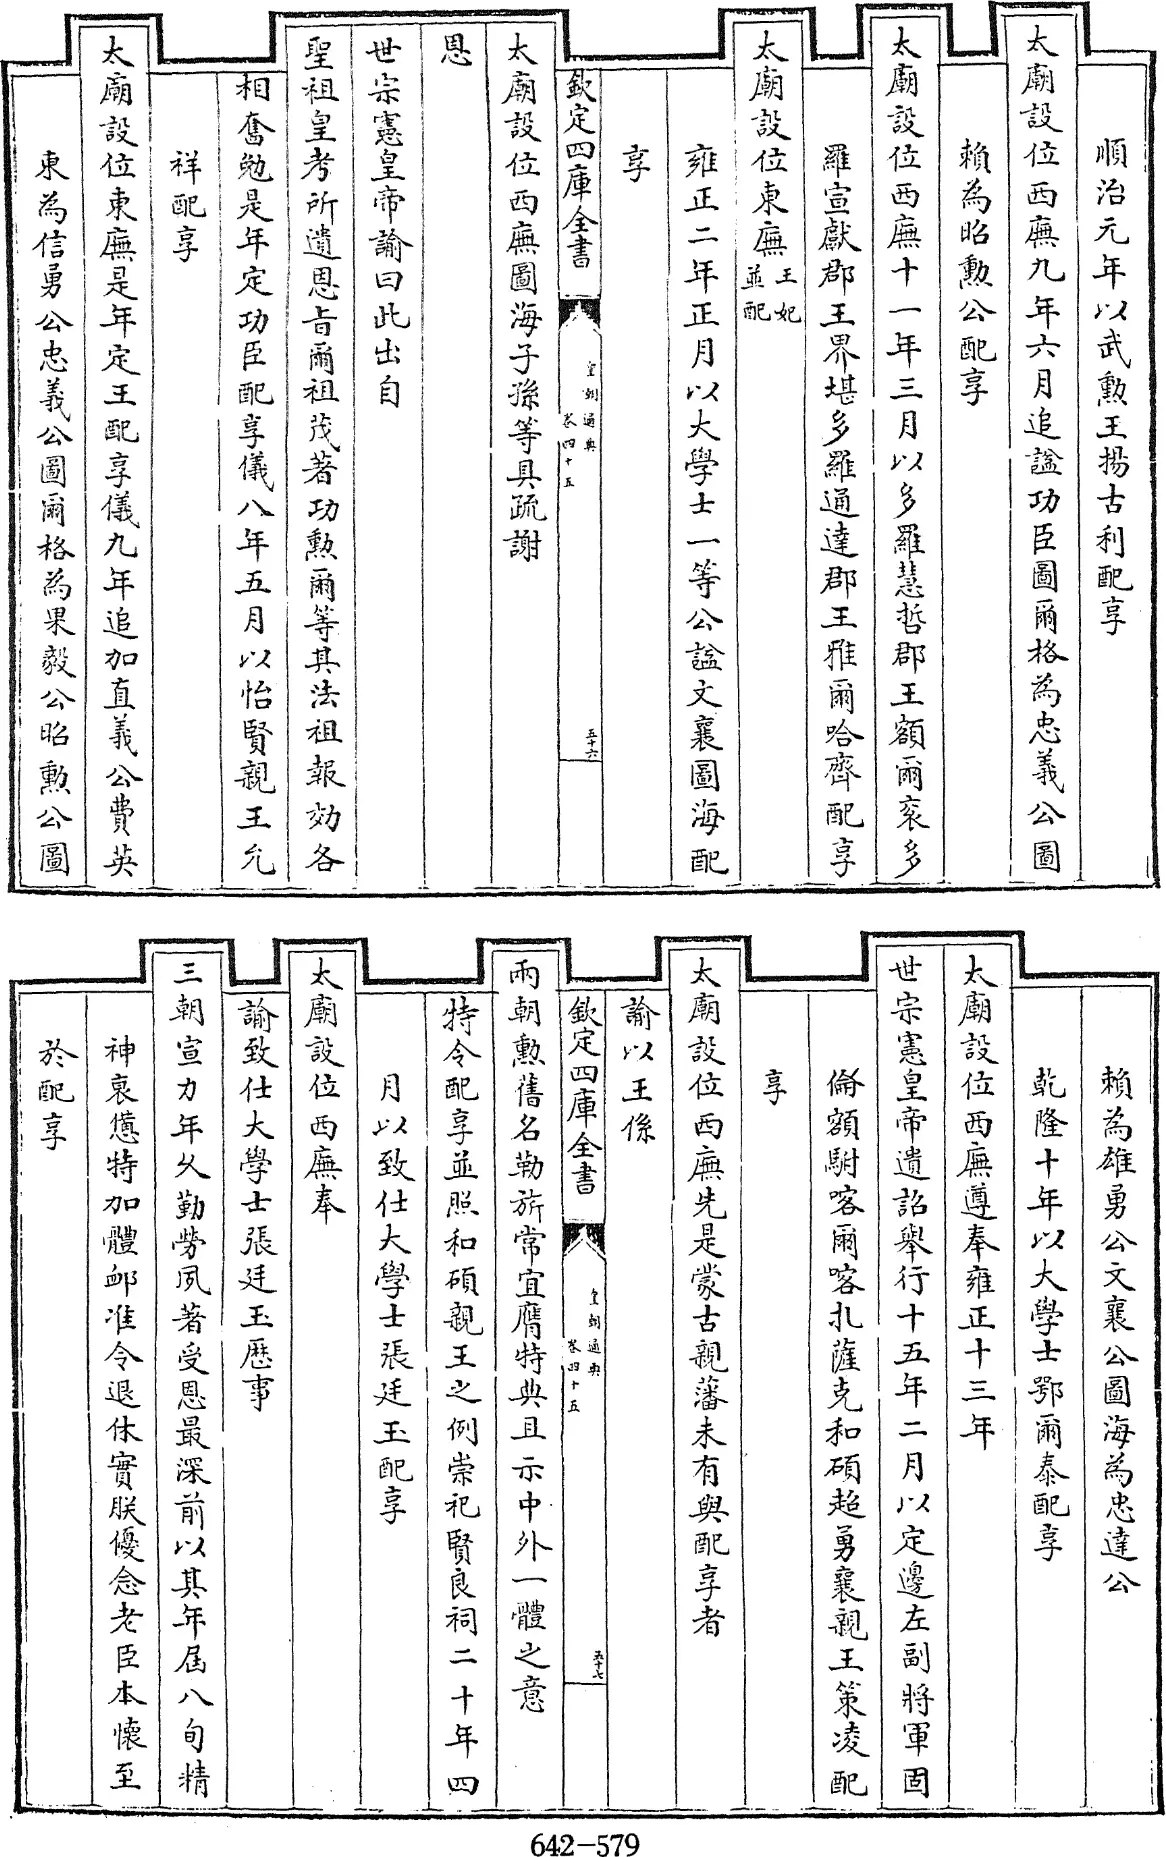 順治元年以武勲王揚古利配享
太廟設位西廡九年六月追諡功臣圖爾格為忠義公圖
賴為昭勲公配享
太廟設位西廡十一年三月以多羅慧哲郡王額爾袞多
羅宣獻郡王界堪多羅通達郡王雅爾哈齊配享
太廟設位東廡王妃並配
雍正二年正月以大學士一等公諡文襄圖海配
享
欽定四庫全書
皇朝通典
卷四十五
五十六
太廟設位西廡圖海子孫等具疏謝
恩
世宗憲皇帝諭曰此出自
聖祖皇考所遺恩旨爾祖茂著功勲爾等其法祖報効各
相奮勉是年定功臣配享儀八年五月以怡賢親王允
祥配享
太廟設位東廡是年定王配享儀九年追加直義公費英
東為信勇公忠義公圖爾格為果毅公昭勲公圖
賴為雄勇公文襄公圖海為忠達公
乾隆十年以大學士鄂爾泰配享
太廟設位西廡遵奉雍正十三年
世宗憲皇帝遺詔舉行十五年二月以定邊左副將軍固
倫額駙喀爾喀扎薩克和碩超勇襄親王策凌配
享
太廟設位西廡先是蒙古親藩未有與配享者
諭以王係
欽定四庫全書
皇朝通典
卷四十五
五十七
兩朝勲舊名勒旂常宜膺特典且示中外一體之意
特令配享並照和碩親王之例崇祀賢良祠二十年四
月以致仕大學士張廷玉配享
太廟設位西廡奉
諭致仕大學士張廷玉歷事
三朝宣力年久勤勞夙著受恩最深前以其年届八旬精
神衰憊特加體卹准令退休實朕優念老臣本懷至
於配享
642-579